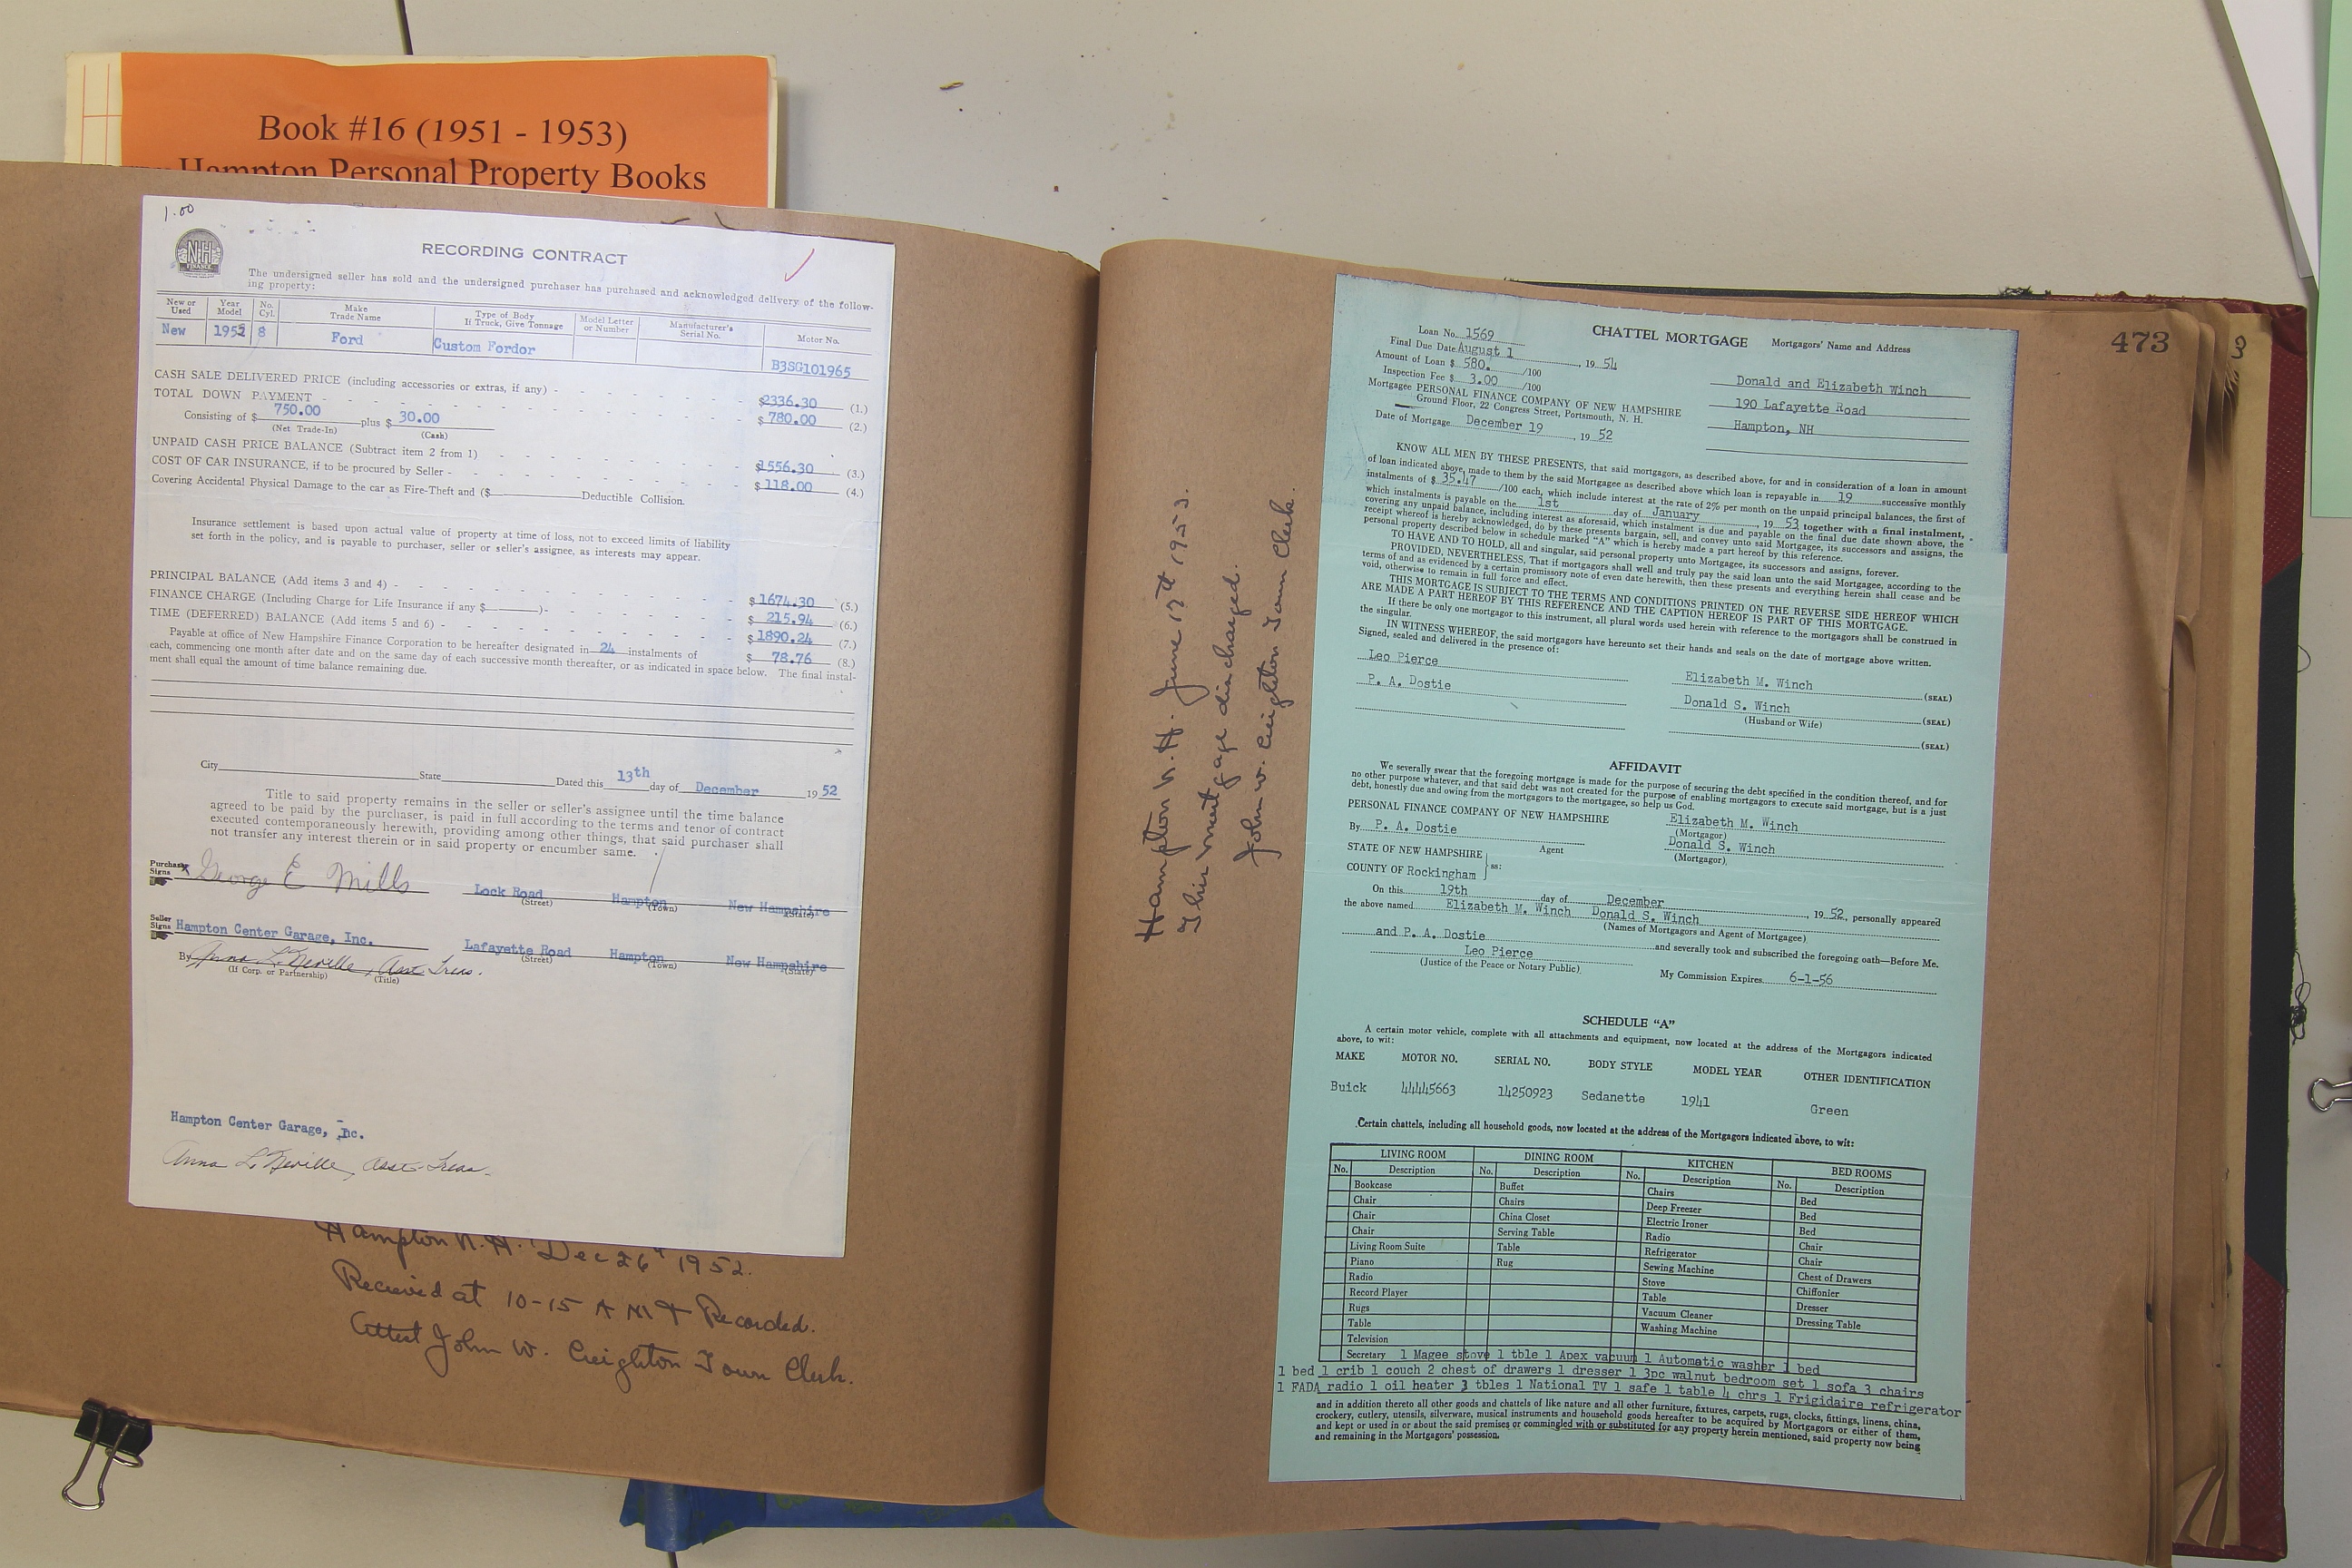 Book #16 (1951 - 1953)
Hampton Personal Property Books
1.00
NH
FINANCE
RECORDING CONTRACT
The undersigned seller has sold and the undersigned purchaser has purchased and acknowledged delivery of the follow-
ing property:
New or Used Year Model No. Cyl. Make Trade Name Type of Body If Truck, Give Tonnage Model Letter or Number Manufacturer's Serial No. Motor No.
New 1952 8 Ford Custom Fordor B3SG101965
CASH SALE DELIVERED PRICE (including accessories or extras, if any) - $2336.30 (1.)
TOTAL DOWN PAYMENT - $780.00 (2.)
Consisting of $ 750.00 plus $ 30.00
(Net Trade-In) (Cash)
UNPAID CASH PRICE BALANCE (Subtract item 2 from 1) $1556.30 (3.)
COST OF CAR INSURANCE, if to be procured by Seller - $118.00 (4.)
Covering Accidental Physical Damage to the car as Fire-Theft and ($ Deductible Collision.
Insurance settlement is based upon actual value of property at time of loss, not to exceed limits of liability
set forth in the policy, and is payable to purchaser, seller or seller's assignee, as interests may appear.
PRINCIPAL BALANCE (Add items 3 and 4) - $1674.30 (5.)
FINANCE CHARGE (Including Charge for Life Insurance if any $ )- $ 215.94 (6.)
TIME (DEFERRED) BALANCE (Add items 5 and 6) - $1890.24 (7.)
Payable at office of New Hampshire Finance Corporation to be hereafter designated in 24 instalments of $ 78.76 (8.)
each, commencing one month after date and on the same day of each successive month thereafter, or as indicated in space below. The final instal-
ment shall equal the amount of time balance remaining due.
City State Dated this 13th day of December 19 52
Title to said property remains in the seller or seller's assignee until the time balance
agreed to be paid by the purchaser, is paid in full according to the terms and tenor of contract
executed contemporaneously herewith, providing among other things, that said purchaser shall
not transfer any interest therein or in said property or encumber same.
Purchaser Signs x George E Mills Lock Road Hampton New Hampshire
(Street) (Town) (State)
Seller Signs Hampton Center Garage, Inc. Lafayette Road Hampton New Hampshire
(Street) (Town) (State)
By Anna L. Neville, Asst Treas.
(If Corp. or Partnership) (Title)
Hampton Center Garage, Inc.
Anna L. Neville, Asst. Treas.
Hampton N.H. Dec 26th 1952.
Recieved at 10-15 A M & Recorded.
Attest John W. Creighton Town Clerk.
Hampton N.H. June 17th 1953.
This mortgage discharged.
John W. Creighton Town Clerk.
473
3
Loan No. 1569
CHATTEL MORTGAGE
Mortgagors' Name and Address
Final Due Date August 1, 19 54
Amount of Loan $ 580. /100
Inspection Fee $ 3.00 /100
Mortgagee PERSONAL FINANCE COMPANY OF NEW HAMPSHIRE
Ground Floor, 22 Congress Street, Portsmouth, N. H.
Date of Mortgage December 19, 19 52
Donald and Elizabeth Winch
190 Lafayette Road
Hampton, NH
KNOW ALL MEN BY THESE PRESENTS, that said mortgagors, as described above, for and in consideration of a loan in amount
of loan indicated above, made to them by the said Mortgagee as described above which loan is repayable in 19 successive monthly
instalments of $ 35.47 /100 each, which include interest at the rate of 2% per month on the unpaid principal balances, the first of
which instalments is payable on the 1st day of January, 19 53 together with a final instalment,
covering any unpaid balance, including interest as aforesaid, which instalment is due and payable on the final due date shown above, the
receipt whereof is hereby acknowledged, do by these presents bargain, sell, and convey unto said Mortgagee, its successors and assigns, the
personal property described below in schedule marked "A" which is hereby made a part hereof by this reference.
TO HAVE AND TO HOLD, all and singular, said personal property unto Mortgagee, its successors and assigns, forever.
PROVIDED, NEVERTHELESS, That if mortgagors shall well and truly pay the said loan unto the said Mortgagee, according to the
terms of and as evidenced by a certain promissory note of even date herewith, then these presents and everything herein shall cease and be
void, otherwise to remain in full force and effect.
THIS MORTGAGE IS SUBJECT TO THE TERMS AND CONDITIONS PRINTED ON THE REVERSE SIDE HEREOF WHICH
ARE MADE A PART HEREOF BY THIS REFERENCE AND THE CAPTION HEREOF IS PART OF THIS MORTGAGE.
If there be only one mortgagor to this instrument, all plural words used herein with reference to the mortgagors shall be construed in
the singular.
IN WITNESS WHEREOF, the said mortgagors have hereunto set their hands and seals on the date of mortgage above written.
Signed, sealed and delivered in the presence of:
Leo Pierce Elizabeth M. Winch (SEAL)
P. A. Dostie Donald S. Winch (SEAL)
(Husband or Wife)
(SEAL)
AFFIDAVIT
We severally swear that the foregoing mortgage is made for the purpose of securing the debt specified in the condition thereof, and for
no other purpose whatever, and that said debt was not created for the purpose of enabling mortgagors to execute said mortgage, but is a just
debt, honestly due and owing from the mortgagors to the mortgagee, so help us God.
PERSONAL FINANCE COMPANY OF NEW HAMPSHIRE Elizabeth M. Winch
(Mortgagor)
By P. A. Dostie Donald S. Winch
Agent (Mortgagor)
STATE OF NEW HAMPSHIRE
ss:
COUNTY OF Rockingham
On this 19th day of December, 19 52, personally appeared
the above named Elizabeth M. Winch Donald S. Winch
(Names of Mortgagors and Agent of Mortgagee)
and P. A. Dostie and severally took and subscribed the foregoing oath—Before Me.
Leo Pierce
(Justice of the Peace or Notary Public)
My Commission Expires 6-1-56
SCHEDULE "A"
A certain motor vehicle, complete with all attachments and equipment, now located at the address of the Mortgagors indicated
above, to wit:
MAKE MOTOR NO. SERIAL NO. BODY STYLE MODEL YEAR OTHER IDENTIFICATION
Buick 44445663 14250923 Sedanette 1941 Green
Certain chattels, including all household goods, now located at the address of the Mortgagors indicated above, to wit:
LIVING ROOM DINING ROOM KITCHEN BED ROOMS
No. Description No. Description No. Description No. Description
Bookcase Buffet Chairs Bed
Chair Chairs Deep Freezer Bed
Chair China Closet Electric Ironer Bed
Chair Serving Table Radio Chair
Living Room Suite Table Refrigerator Chair
Piano Rug Sewing Machine Chest of Drawers
Radio Stove Chiffonier
Record Player Table Dresser
Rugs Vacuum Cleaner Dressing Table
Table Washing Machine
Television
Secretary 1 Magee stove 1 tble 1 Apex vacuum 1 Automatic washer 1 bed
1 bed 1 crib 1 couch 2 chest of drawers 1 dresser 1 3pc walnut bedroom set 1 sofa 3 chairs
1 FADA radio 1 oil heater 3 tbles 1 National TV 1 safe 1 table 4 chrs 1 Frigidaire refrigerator
and in addition thereto all other goods and chattels of like nature and all other furniture, fixtures, carpets, rugs, clocks, fittings, linens, china,
crockery, cutlery, utensils, silverware, musical instruments and household goods hereafter to be acquired by Mortgagors or either of them,
and kept or used in or about the said premises or commingled with or substituted for any property herein mentioned, said property now being
and remaining in the Mortgagors' possession.